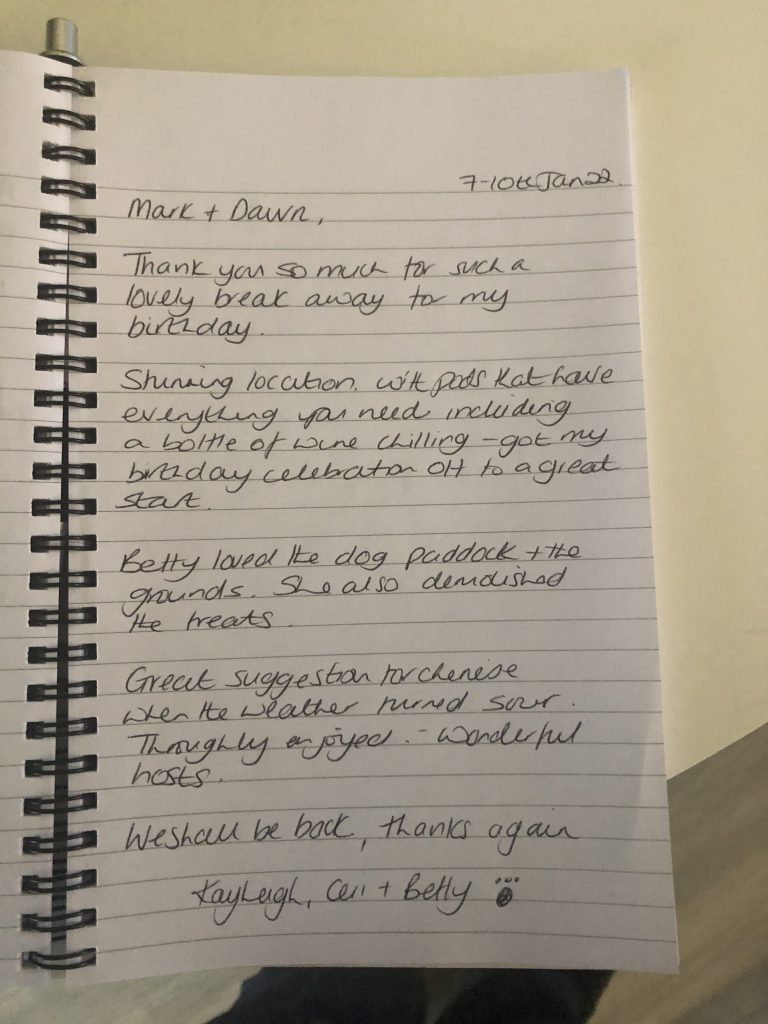 7-10th Jan 22.
Mark + Dawn,
Thank you so much for such a
lovely break away for my
birthday.
Stunning location. with pods that have
everything you need including
a bottle of wine chilling - got my
birthday celebration off to a great
start.
Betty loved the dog paddock + the
grounds. She also demolished
the treats.
Great suggestion for chenese
when the weather turned sour.
Throughly enjoyed. - Wonderful
hosts.
We shall be back, thanks again
Kayleigh, Ceri + Betty